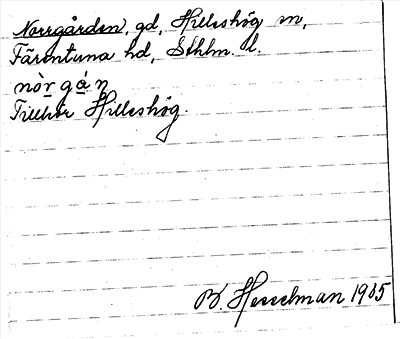 Norrgården, gd, Hilleshög sn,
Färentuna hd, Sthlm. l.
nòr gá̱ n
Tillhör Hilleshög.
B. Hesselman 1905